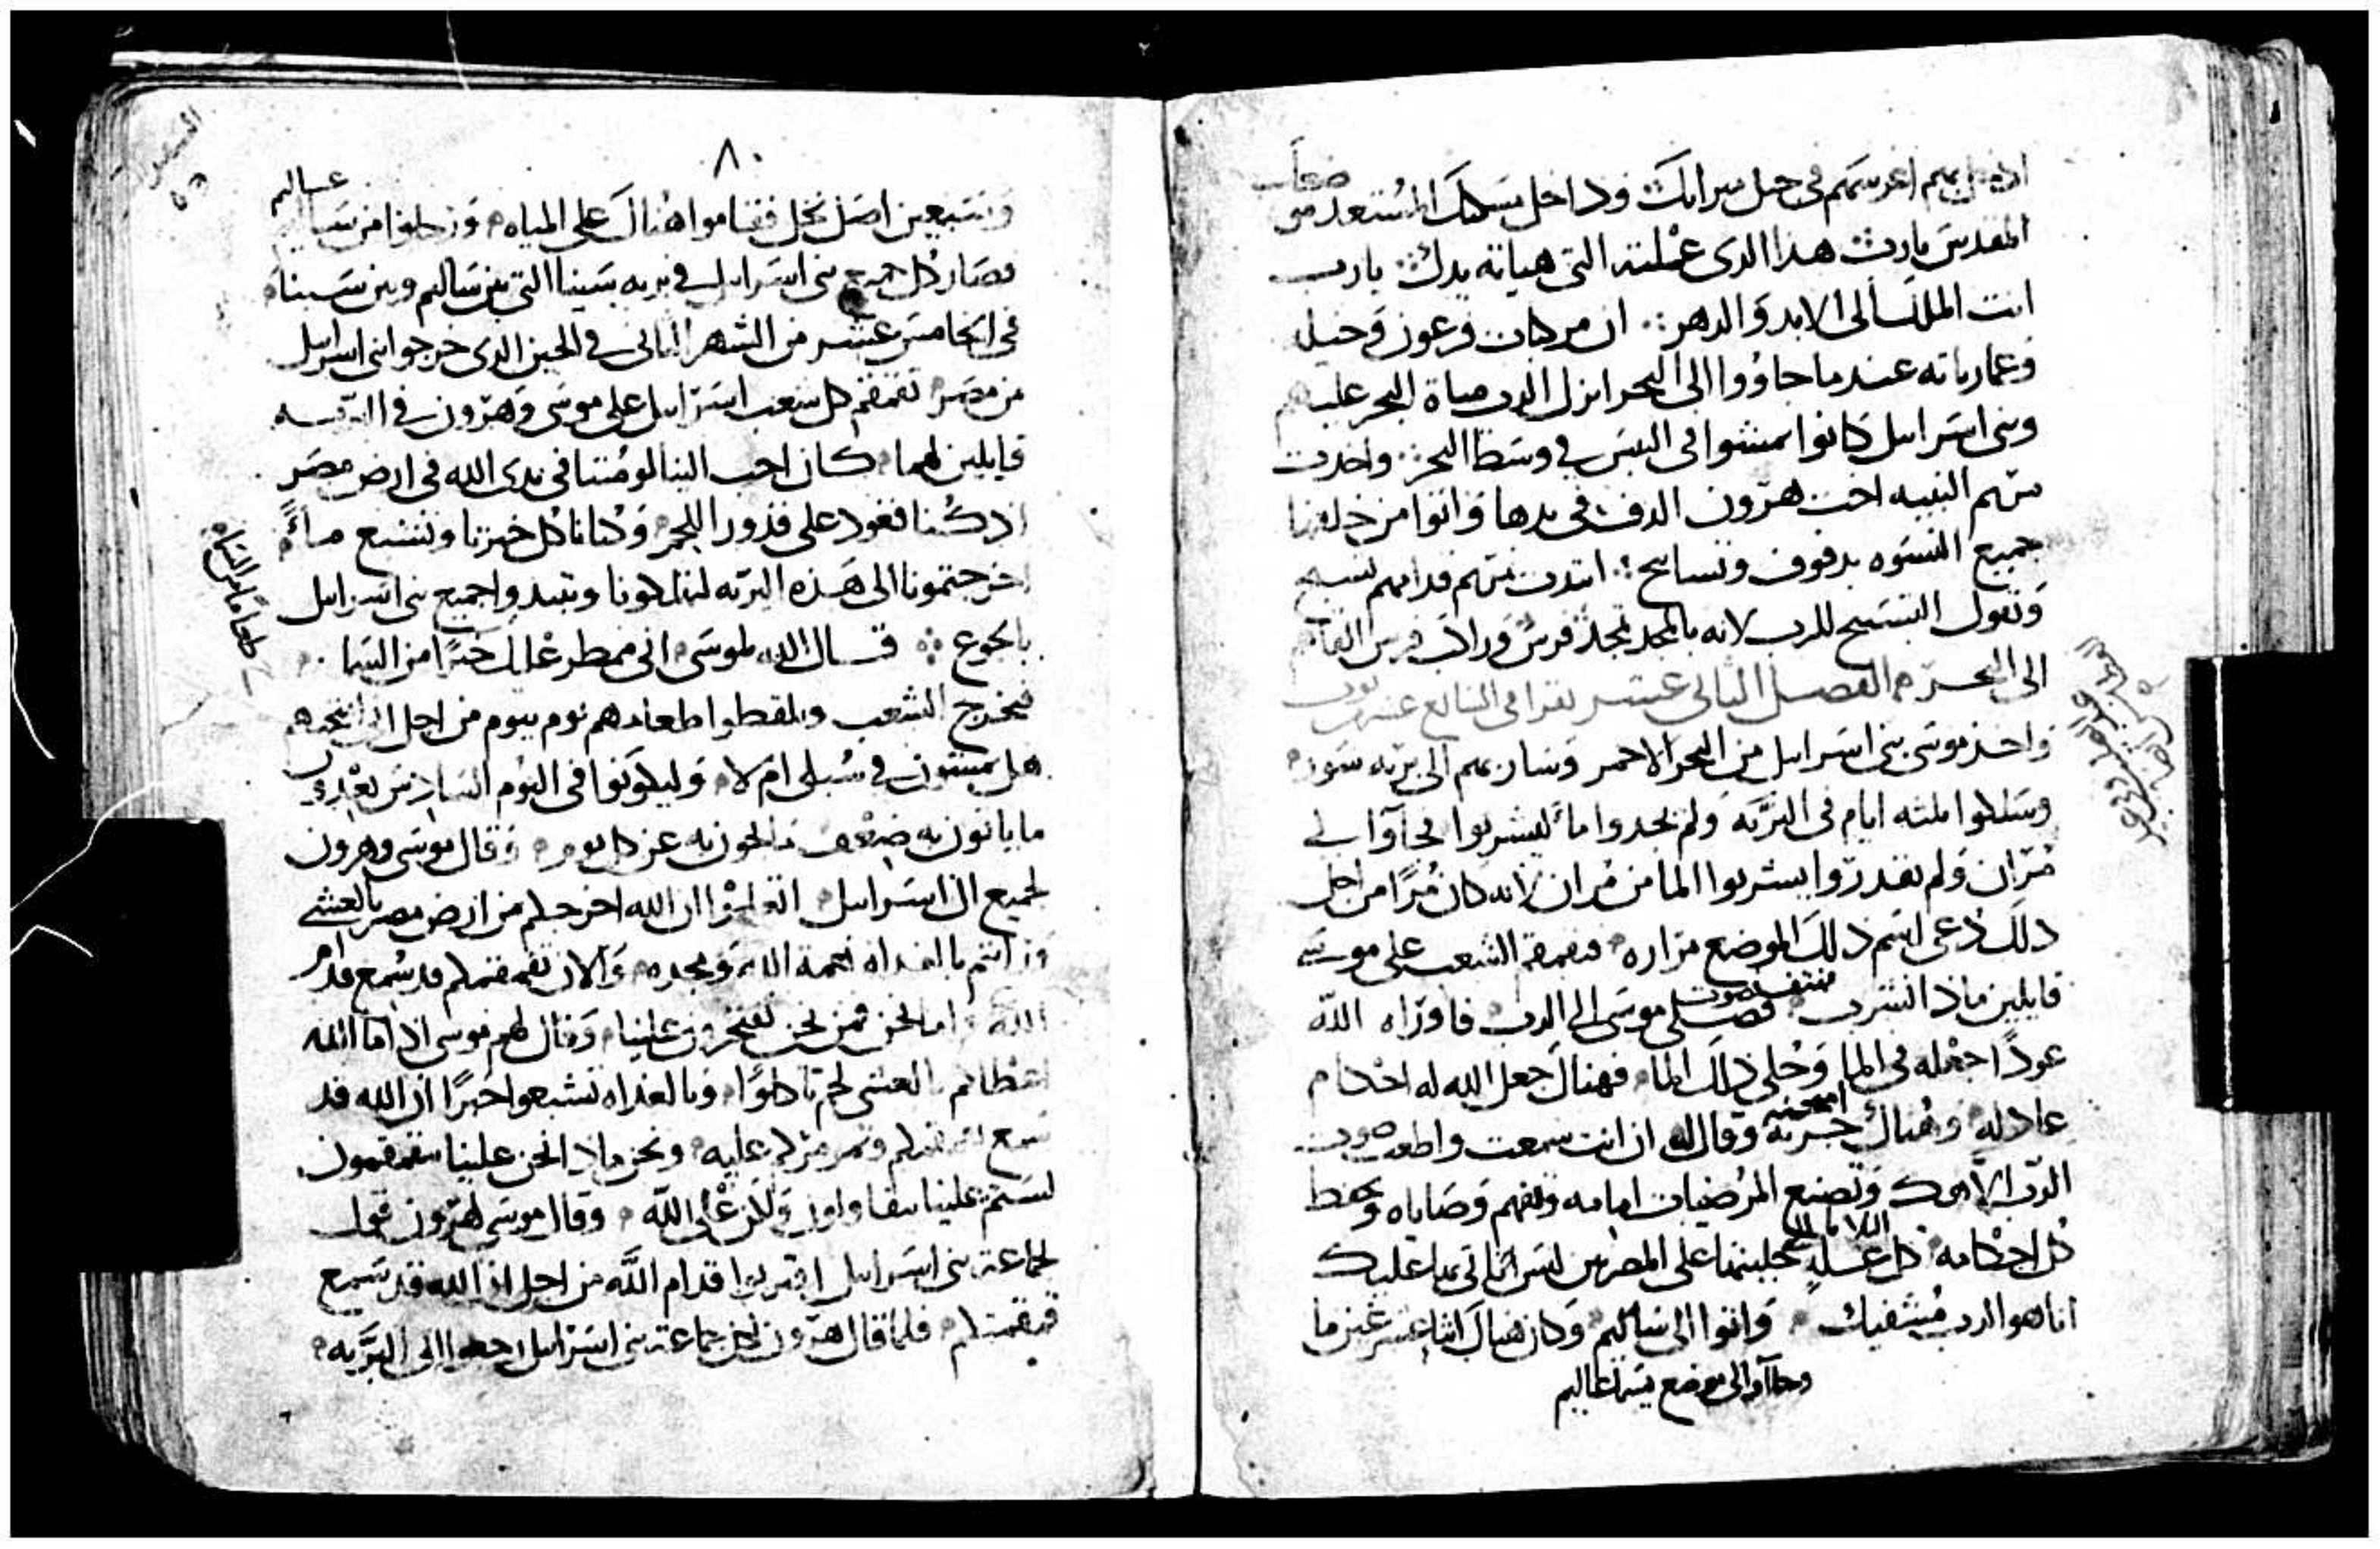 ادخل بهم اغرسهم فى جبل ميراثك وداخل مسكنك المستعد من
المقدس يارب هذا الدى عملته التى هياته يدك يارب
انت الملك الى الابد والدهر ان مركبات فرعون وخيل
وعمارياته عندما جاؤوا الى البحر انزل الرب مياة البحر عليهم
وبنى اسرايل كانوا يمشوا فى اليبس فى وسط البحر واخدت
مريم النبيه اخت هرون الدف فى يدها واتوا من خلفها
جميع النسوه بدفوف وتسابيح ابتدت مريم قدامهم تسبح
وتقول التسبيح للرب لانه بالمجد تمجد فرس وراكب فرس القاهم
الى البحر الفصل الثانى عشر يقرا فى السابع عشر
واخذ موسى بنى اسرايل من البحر الاحمر وسار بهم الى بريه سور
وسلكوا ثلثه ايام فى البريه ولم يجدوا ماء ليشربوا فجآوا الى
مران ولم يقدروا يشربوا الما من مران لانه كان مرا من اجل
دلك دعى اسم ذلك الموضع مراره فتقمقم الشعب على موسى
قايلين ماذا نشرب فصلى موسى الى الرب فاوراه الله
عودا اجعله فى الما وحلى ذلك الما فهناك جعل الله له احكام
عادله وهناك جربه امتحنه وقال له ان انت سمعت واطعت صوت
الرب الاهك وتصنع المرضيات امامه وتفهم وصاياه وتحفظ
كل احكامه كل عله البلايا التى جلبتها على المصريين لس اناتى بها عليك
انا هو الرب مشفيك واتوا الى ساليم وكان هناك اثنا عشر عين ما
وجاآوا الى موضع يسما عاليم
٨٠
وسبعين اصل نخل فقاموا هناك على المياه ورحلوا من ساليم
عساليم
فصار كل جمع بنى اسرايل فى بريه سينا التى بين ساليم وبين سينا
فى الخامس عشر من الشهر الثانى فى الحين الدى خرجوا بنى اسرايل
من مصر تقمقم كل شعب اسرايل على موسى وهرون فى البريه
قايلين لهما كان احب الينا لو متنا فى يدى الله فى ارض مصر
اد كنا قعود على قدور اللحم وكنا ناكل خبزنا ونشبع
اخرجتمونا الى هذه البريه لتهلكونا وتبيدوا جميع بنى اسرايل
بالجوع قال الله لموسى انى ممطر عليك خبزا من السما
فيخرج الشعب ويلقطوا طعامهم يوم بيوم من اجل انى امتحنهم
هل يمشون فى سبلى ام لا وليكونوا فى اليوم السادس يعدوا
ما ياتون به ضعف ما يلحون به عن كل يوم وقال موسى وهرون
لجميع ال اسرايل اتعلموا ان الله اخرجكم من ارض مصر بالعشى
وانتم بالغداه نعمة الله ومجده والان تقمقمكم قد سمع قدام
الله واما نحن فمن نحن تفتخرون علينا وقال لهم موسى اذ اما الله
اعطاكم بالعشى لحم تاكلوا وبالغداه تشبعوا خبزا ان الله قد
سمع تقمقمكم وتمرمركم عليه ونحن ماذا نحن علينا تتقمقمون
لستم علينا تتقاولون ولكن على الله وقال موسى لهرون قول
لجماعة بنى اسرايل اقتربوا قدام الله من اجل ان الله قد سمع
قمقمتكم فلما قال هرون لكل جماعة بنى اسرايل رجعوا الى البريه